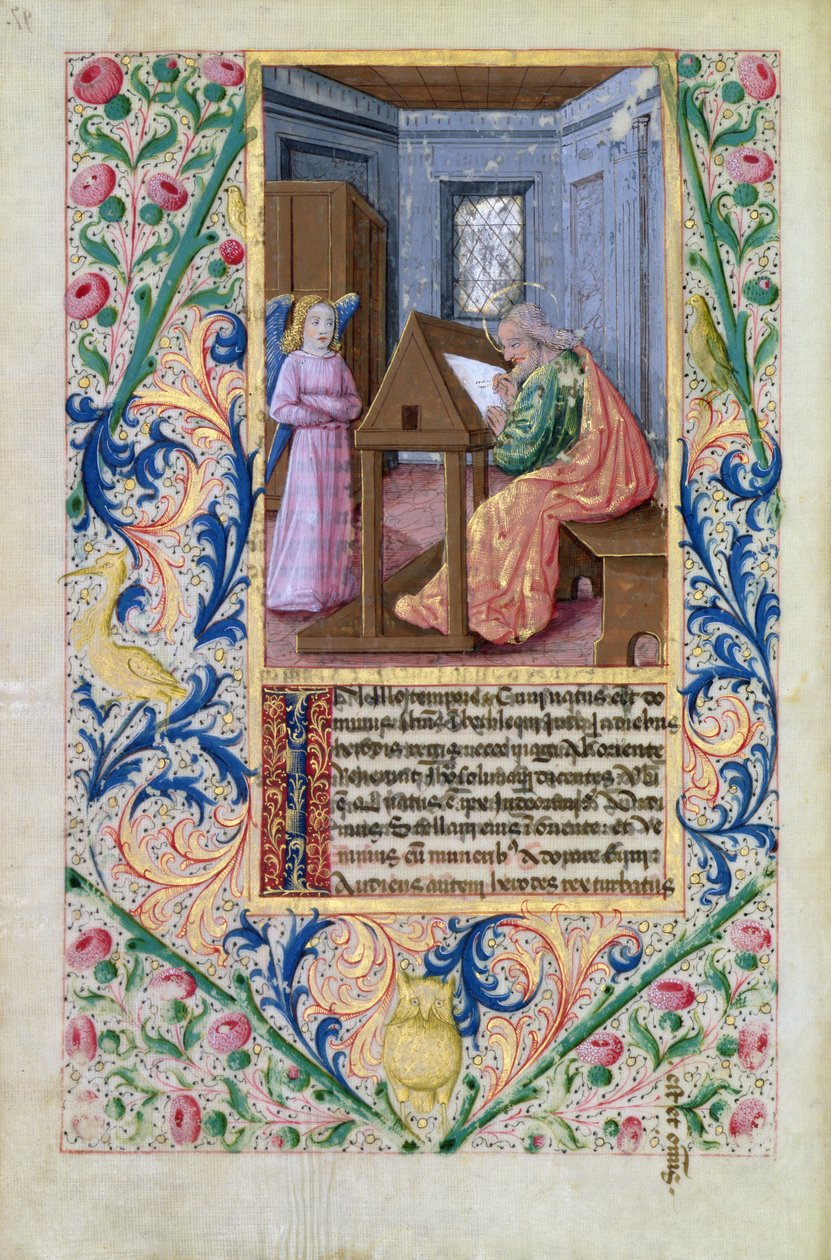 In illo tempore Cum natus eet do
minus ihūs i bethleē iude In diebus
herodis regis: ecce magi Ab oriente
Venerunt Iherosolimam dicentes: Vbi
ē Qui natus ē rex Iudeorum? Vidi
mus Stellam eius ī oriente: et Ve
nimus cū munerib⁹ Adorare Eum:
Audiens autem herodes rex turbatus
est et om̄is.